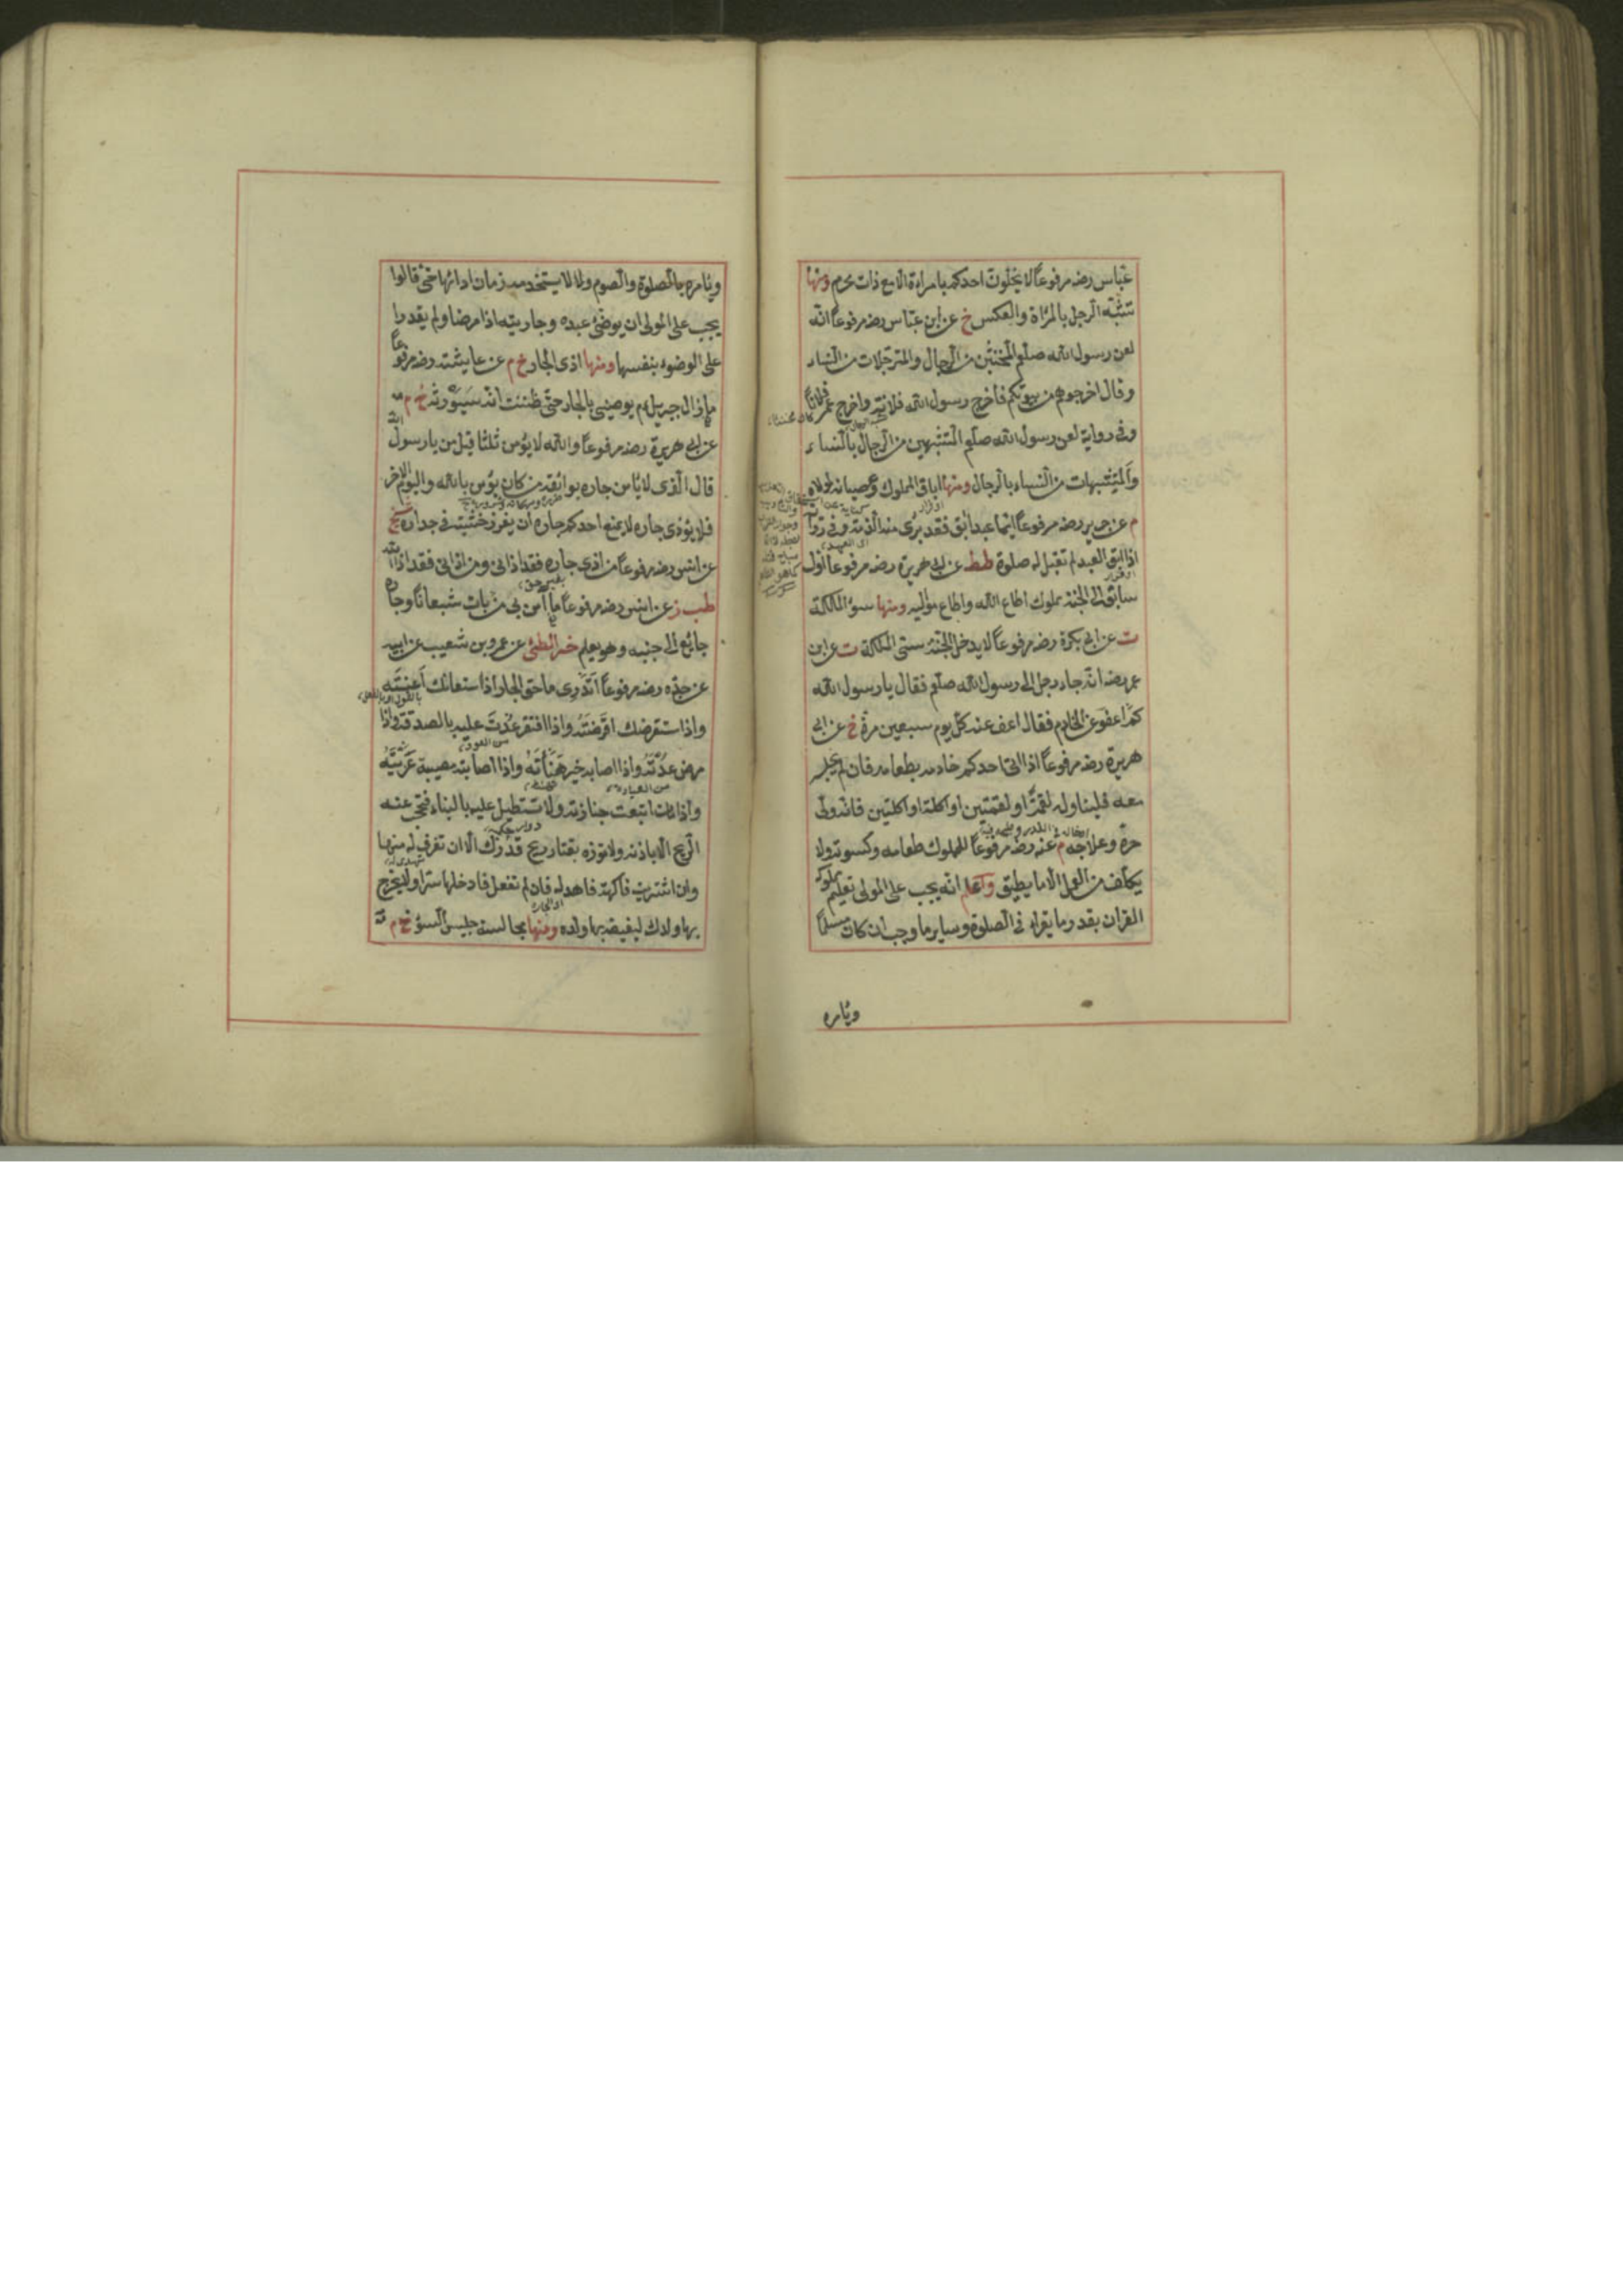 عباس رضه مرفوعاً لا يخلون احدكم بامراءة الا مع ذات محرم ومنها
تشبّه الرجل بالمرأة والعكس خ عن ابن عبّاس رضه مرفوعاً انّه
لعن رسول الله صلعم المخنثين من الرجال والمترجلات من النساء
وقال اخرجوهم من بيوتكم فأخرج رسول الله فلانة واخرج عمر فلاناً
وفى رواية لعن رسول الله صلعم المتشبهين من الرجال بالنساء
والمتشبهات من النساء بالرجال ومنها اباق المملوك وعصيانه لمولاه
م عن جرير رضه مرفوعاً ايّما عبد ابق فقد برئ منه الذمّة وفى رواية
اذا ابق العبد لم تقبل له صلوة طط عن ابى هريرة رضه مرفوعاً اوّل
سابق الى الجنّة مملوك اطاع الله واطاع مواليه ومنها سوء الملكة
ت عن ابى بكرة رضه مرفوعاً لا يدخل الجنّة سىّء الملكة ت عن ابن
عمر رضه انّه جاء رجل الى رسول الله صلعم فقال يا رسول الله
كم اعفو عن الخادم فقال اعف عنه كل يوم سبعين مرة خ عن ابى
هريرة رضه مرفوعاً اذا اتى احدكم خادمه بطعامه فان لم يجلسه
معه فليناوله لقمة او لقمتين او اكلة او اكلتين فانّه ولى
حره وعلاجه م عنه رضه مرفوعاً للمملوك طعامه وكسوته ولا
يكلف من العمل الا ما يطيق واعلم انّه يجب على المولى تعليم مملوكه
القرآن بقدر ما يقراء فى الصلوة وساير ما وجب ان كان مسلماً
ويأمره
ويأمره بالصلوة والصوم ولا لا يستخدمه زمان ادائها حتى قالوا
يجب على المولى ان يوضئ عبده وجاريته اذا مرضا ولم يقدرا
على الوضوء بنفسها ومنها اذى الجار خ م عن عايشة رضه مرفوعاً
ما زال جبريل عم يوصينى بالجار حتى ظننت انه سيورثه خ م
عن ابى هريرة رضه مرفوعاً والله لا يؤمن ثلثا قيل من يا رسول الله
قال الّذى لا يأمن جاره بوائقه من كان يؤمن بالله واليوم الآخر
فلا يؤذى جاره لا يمنع احدكم جاره ان يغرز خشبته فى جداره
عن انس رضه مرفوعاً من اذى جاره فقد اذانى ومن اذانى فقد اذى الله
طب ز عن انس رضه مرفوعاً ما آمن بى من بات شبعاناً وجاره
جائع الى جنبه وهو يعلم خرائطئ عن عمرو بن شعيب عن ابيه
عن جدّه رضه مرفوعاً أتدرى ما حق الجار اذا استعانك أعنته
واذا ستقرضك اقرضته واذا افتقر عدت عليه بالصدقة واذا
مرض عدته واذا اصابه خير هنأته واذا اصابته مصيبة عزيته
واذا مات اتبعت جنازته ولا تستطيل عليه بالبناء فتحجب عنه
الريح الا باذنه ولا توذه بقتار ريح قدرك الا ان تغرف له منها
وان اشتريت فاكهة فاهد له فان لم تفعل فادخلها سترا ولا يخرج
بها ولدك ليغيض بها ولده ومنها مجالسة جليس السوء خ م